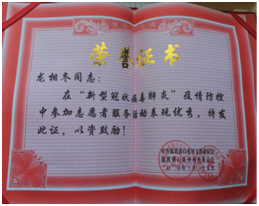 荣誉证书
龙相冬同志：
在“新型冠状病毒肺炎”疫情防控
中参加志愿者服务活动表现优秀，特发
此证，以资鼓励！